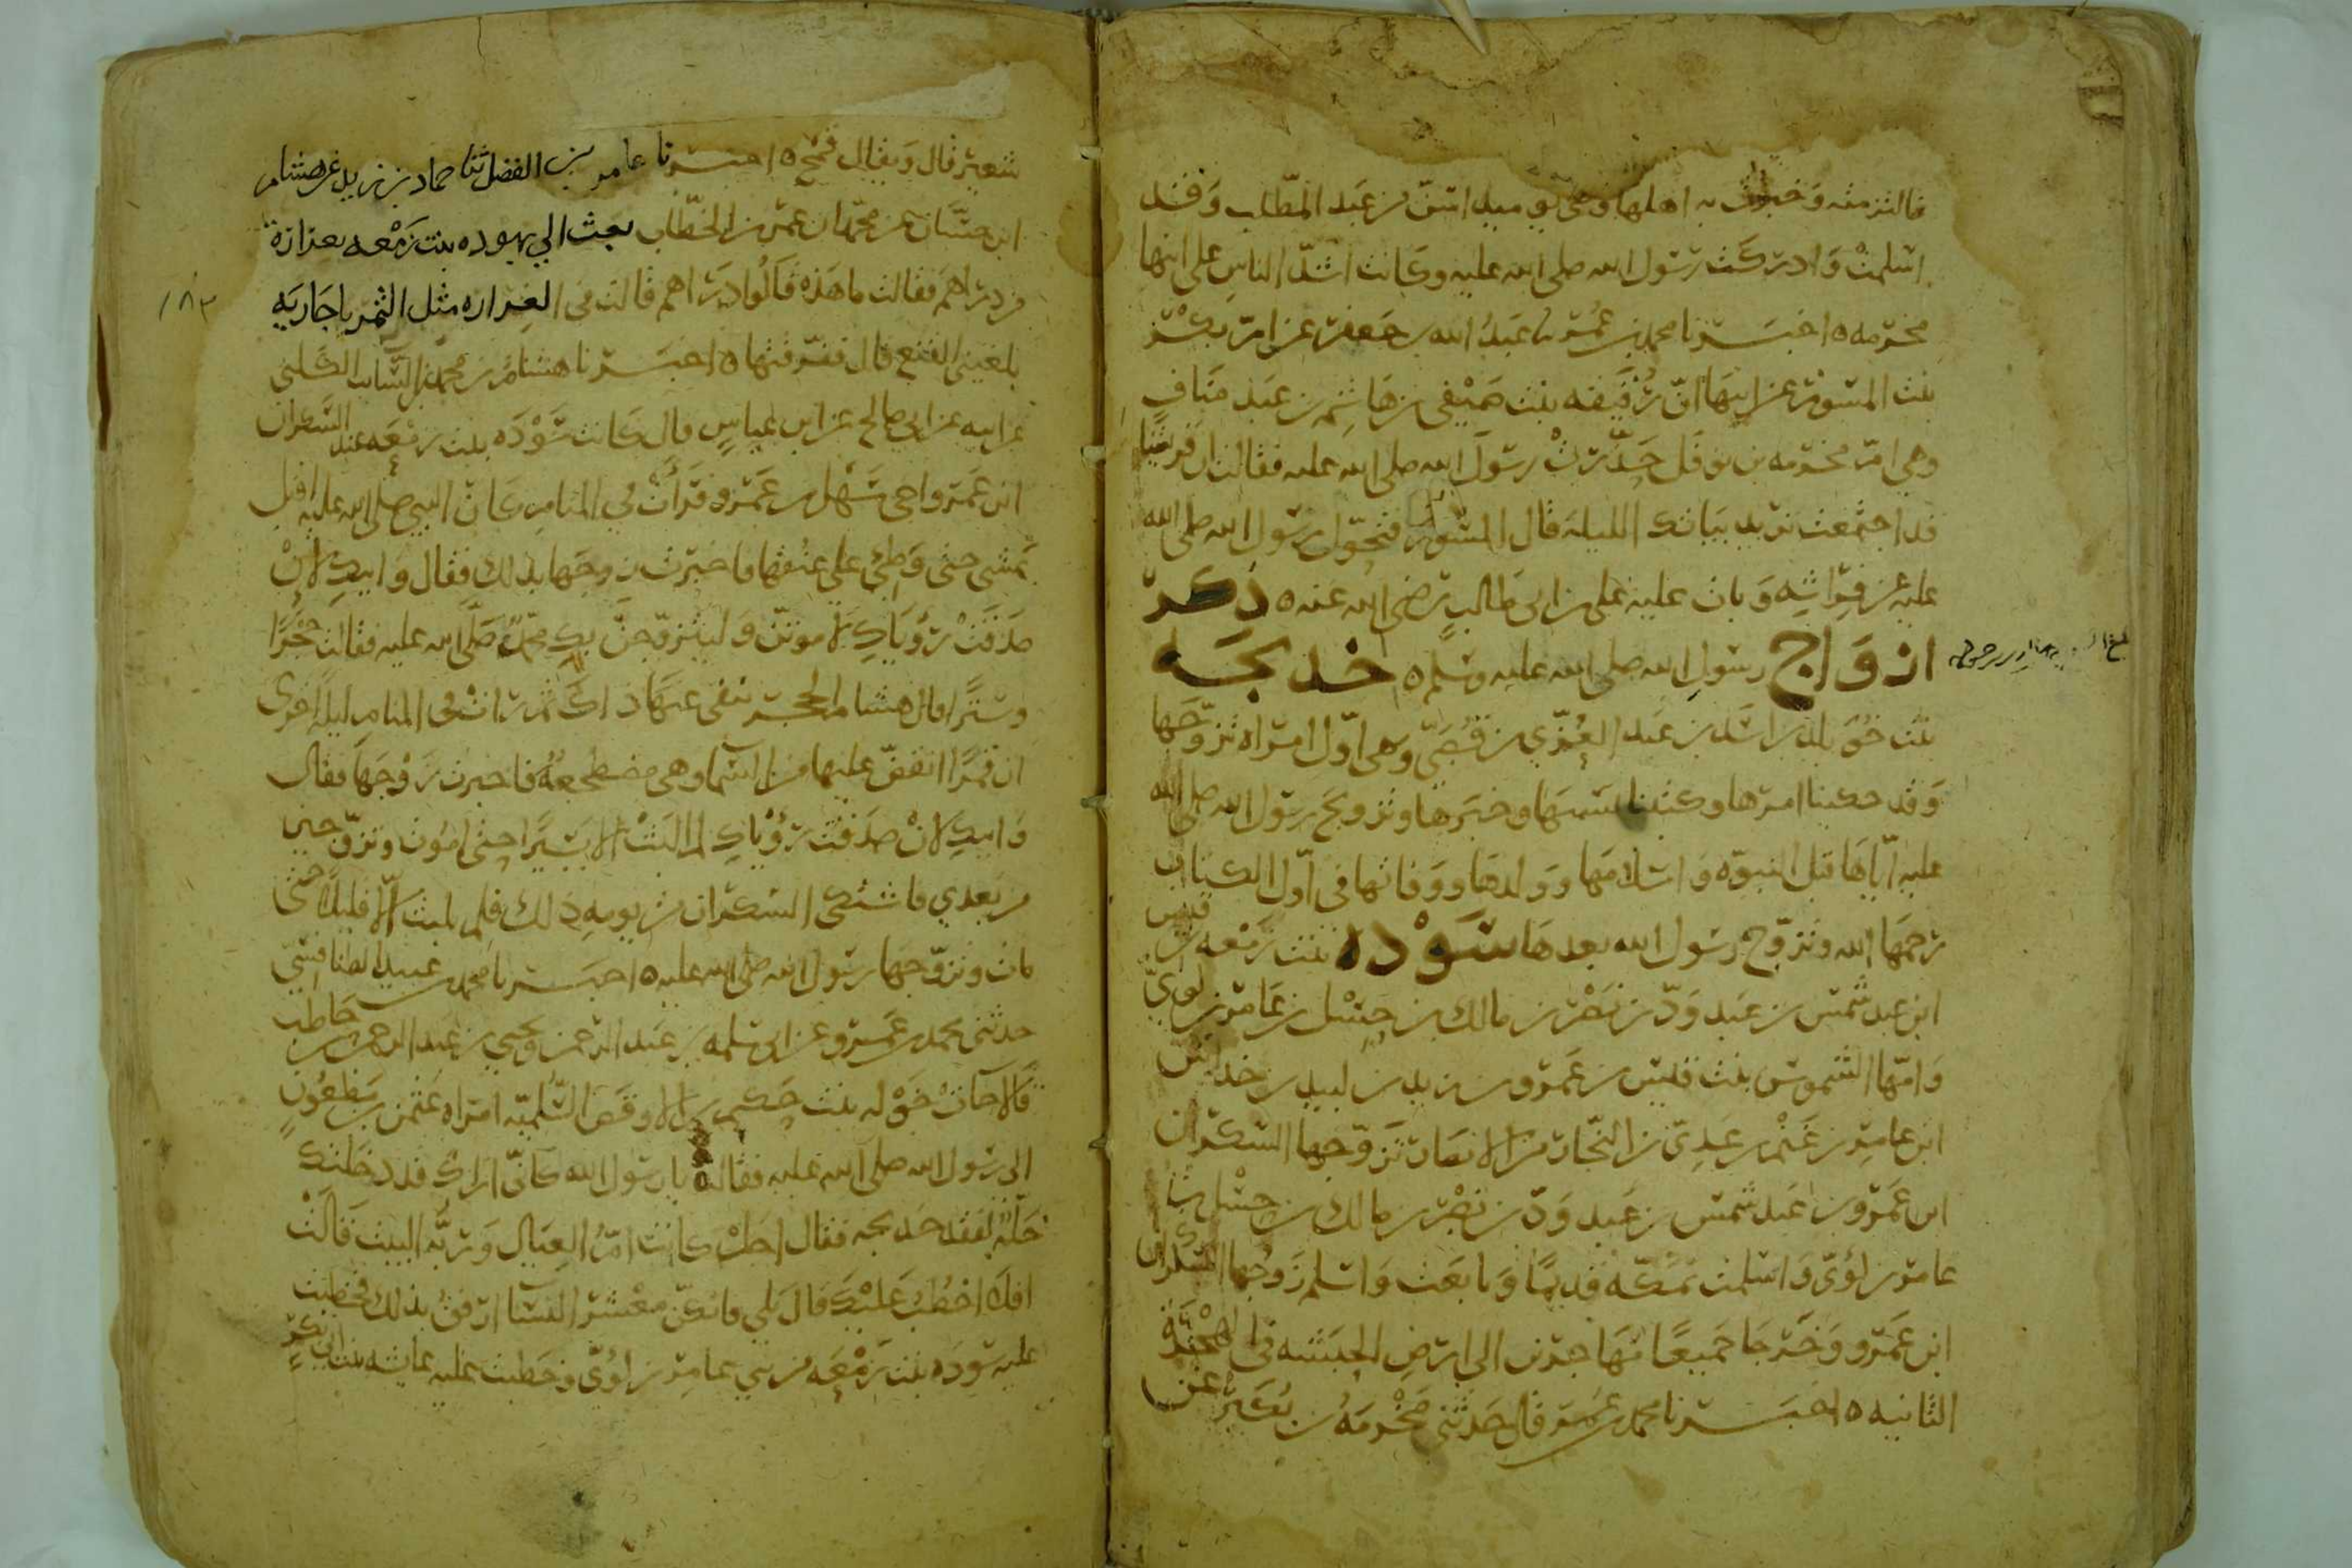 فالتزمته وخبرت به اهلها وهي يوميد اسن من عبد المطلب وقد
اسلمت وادركت رسول الله صلى الله عليه وكانت اشد الناس على ابنها
مخرمه ه اخبرنا محمد بن عمر نا عبد الله بن جعفر عن ام بكر
بنت المسور عن ابيها ان رقيقه بنت صيفي بن هاشم بن عبد مناف
وهي ام مخرمه بن نوفل حذرت رسول الله صلى الله عليه فقالت ان قريشا
قد اجتمعت تريد بياتك الليله قال المسور فتحول رسول الله صلى الله
عليه عن فراشه وبات عليه علي بن ابي طالب رضي الله عنه ه ذكر
ازواج رسول الله صلى الله عليه وسلم ه خديجه
بنت خويلد بن اسد بن عبد العزي بن قصي وهي اول امراه تزوجها
وقد حكينا امرها وكتبنا نسبها وخبرها وتزويج رسول الله صلى الله
عليه اياها قبل النبوه واسلامها وولدها ووفاتها في اول الكتاب
رحمها الله وتزوج رسول الله بعدها سوده بنت زمعه بن قيس
ابن عبد شمس بن عبد ود بن نصر بن مالك بن حسل بن عامر بن لوي
وامها الشموس بنت قيس بن عمرو بن زيد بن لبيد بن خداش
ابن عامر بن غنم بن عدي بن النجار من الانصار تزوجها السكران
ابن عمرو بن عبد شمس بن عبد ود بن نصر بن مالك بن حسل بن
عامر بن لؤي واسلمت بمكه قديما وبايعت واسلم زوجها السكران
ابن عمرو وخرجا جميعا مهاجرين الى ارض الحبشه في الهجره
الثانيه ه اخبرنا محمد بن عمر قال حدثني مخرمه بن بكير عن
شعير قال ويقال قمح ه اخبرنا عامر بن الفضل ثنا حماد بن زيد عن هشام
ابن حسان عن محمد ان عمر بن الخطاب بعث الي سوده بنت زمعه بغرارة
من دراهم فقالت ما هذه قالوا دراهم قالت في الغراره مثل التمر يا جاريه
بلغيني القنع قال ففرقتها ه اخبرنا هشام بن محمد بن السايب الكلبي
عن ابيه عن ابي صالح عن ابن عباس قال كانت سوده بنت زمعه عند السكران
ابن عمرو اخي سهل بن عمرو فرات في المنام كان النبي صلى الله عليه اقبل
يمشي حتى وطئ على عنقها فاخبرت زوجها بذلك فقال وابيك لان
صدقت رؤياك لاموتن وليتزوجنك محمد صلى الله عليه فقالت حجرا
وسترا قال هشام الحجر تنفي عنها ذاك ثم رات في المنام ليله اخرى
ان قمرا انقض عليها من السما وهي مضطجعه فاخبرت زوجها فقال
وابيك لان صدقت رؤياك لم البث الا يسيرا حتى اموت وتزوجين
من بعدي فاشتكى السكران من يومه ذلك فلم يلبث الا قليلا حتى
مات وتزوجها رسول الله صلى الله عليه ه اخبرنا محمد بن عبيد الطنافسي
حدثني محمد بن عمرو عن ابي سلمه بن عبد الرحمن ويحيي بن عبد الرحمن بن حاطب
قالا جاءت خوله بنت حكيم بن الاوقص السلميه امراه عثمن بن مظعون
الى رسول الله صلى الله عليه فقالت يا رسول الله كاني اراك قد دخلتك
خله لفقد خديجه فقال اجل كانت ام العيال وربه البيت قالت
افلا اخطب عليك قال بلى فانكن معشر النسا ارفق بذلك فخطبت
عليه سوده بنت زمعه من بني عامر بن لؤي وخطبت عليه عايشه بنت ابي بكر
١٨٣